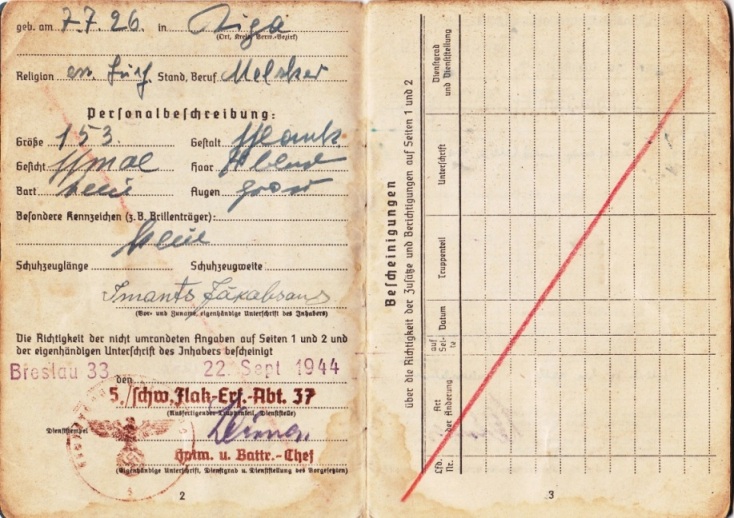 geb. am 7.7.26. in Riga
(Ort, Kreis, Verw.-Bezirk)
Religion ev. Stand, Beruf
Personalbeschreibung:
Größe 153. Gestalt schlank
Gesicht schmal Haar blond
Bart keine Augen grau
Besondere Kennzeichen (z. B. Brillenträger):
keine
Schuhzeuglänge Schuhzeugweite
Imants Jākabsons
(Vor- und Zuname, eigenhändige Unterschrift des Inhabers)
Die Richtigkeit der nicht umrandeten Angaben auf Seiten 1 und 2 und
der eigenhändigen Unterschrift des Inhabers bescheinigt
Breslau 33 22. Sept 1944
den
5./schw. Flak-Ers.-Abt. 37
(Ausfertigender Truppenteil, Dienststelle)
Dienststempel
u. Battr.-Chef
(Eigenhändige Unterschrift, Dienstgrad u. Dienststellung des Vorgesetzten)
2
Bescheinigungen
über die Richtigkeit der Zusätze und Berichtigungen auf Seiten 1 und 2
Lfd. Nr.
Art der Änderung
auf Sei-te
Datum
Truppenteil
Unterschrift
Dienstgrad und Dienststellung
3